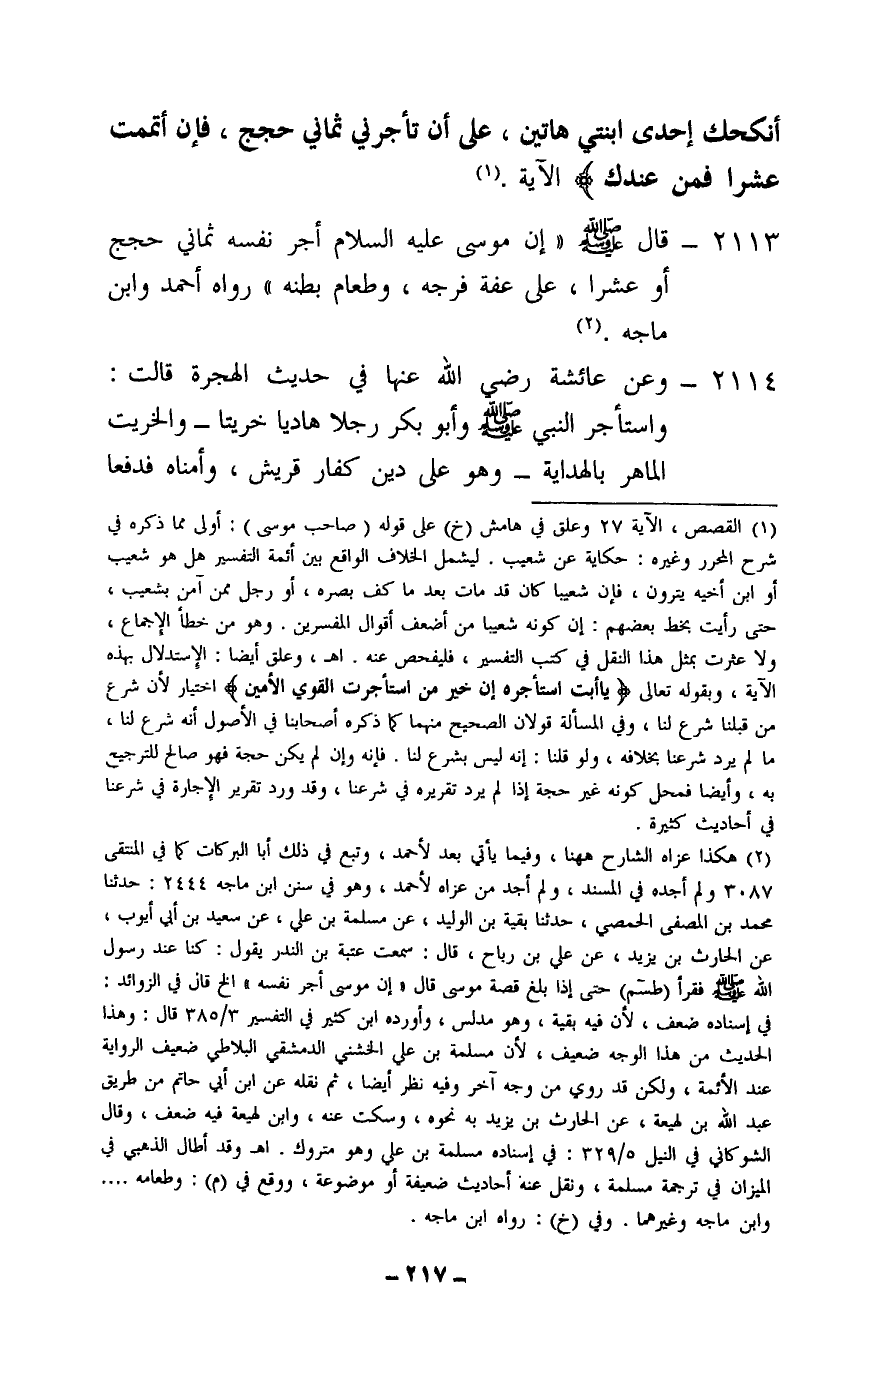 أنكحك إحدى ابنتي هاتين ، على أن تأجرني ثماني حجج ، فإن أتممت
عشرا فمن عندك ﴾ الآية .(١)
٢١١٣ – قال ﷺ « إن موسى عليه السلام أجر نفسه ثماني حجج
أو عشرا ، على عفة فرجه ، وطعام بطنه » رواه أحمد وابن
ماجه .(٢)
٢١١٤ – وعن عائشة رضي الله عنها في حديث الهجرة قالت :
واستأجر النبي ﷺ وأبو بكر رجلا هاديا خريتا – والخريت
الماهر بالهداية – وهو على دين كفار قريش ، وأمناه فدفعا
(١) القصص ، الآية ٢٧ وعلق في هامش (خ) على قوله ( صاحب موسى ) : أولى مما ذكره في
شرح المحرر وغيره : حكاية عن شعيب . ليشمل الخلاف الواقع بين أئمة التفسير هل هو شعيب
أو ابن أخيه يثرون ، فإن شعيبا كان قد مات بعد ما كف بصره ، أو رجل ممن آمن بشعيب ،
حتى رأيت بخط بعضهم : إن كونه شعيبا من أضعف أقوال المفسرين . وهو من خطأ الإجماع ،
ولا عثرت بمثل هذا النقل في كتب التفسير ، فليفحص عنه . اهـ ، وعلق أيضا : الإستدلال بهذه
الآية ، وبقوله تعالى ﴿ ياأبت استأجره إن خير من استأجرت القوي الأمين ﴾ اختيار لأن شرع
من قبلنا شرع لنا ، وفي المسألة قولان الصحيح منهما كما ذكره أصحابنا في الأصول أنه شرع لنا ،
ما لم يرد شرعنا بخلافه ، ولو قلنا : إنه ليس بشرع لنا . فإنه وإن لم يكن حجة فهو صالح للترجيح
به ، وأيضا فمحل كونه غير حجة إذا لم يرد تقريره في شرعنا ، وقد ورد تقرير الإجارة في شرعنا
في أحاديث كثيرة .
(٢) هكذا عزاه الشارح ههنا ، وفيما يأتي بعد لأحمد ، وتبع في ذلك أبا البركات كما في المنتقى
٣٠٨٧ ولم أجده في المسند ، ولم أجد من عزاه لأحمد ، وهو في سنن ابن ماجه ٢٤٤٤ : حدثنا
محمد بن المصفى الحمصي ، حدثنا بقية بن الوليد ، عن مسلمة بن علي ، عن سعيد بن أبي أيوب ،
عن الحارث بن يزيد ، عن علي بن رباح ، قال : سمعت عتبة بن الندر يقول : كنا عند رسول
الله ﷺ فقرأ (طسٓم) حتى إذا بلغ قصة موسى قال « إن موسى أجر نفسه » الخ قال في الزوائد :
في إسناده ضعف ، لأن فيه بقية ، وهو مدلس ، وأورده ابن كثير في التفسير ٣٨٥/٣ قال : وهذا
الحديث من هذا الوجه ضعيف ، لأن مسلمة بن علي الخشني الدمشقي البلاطي ضعيف الرواية
عند الأئمة ، ولكن قد روي من وجه آخر وفيه نظر أيضا ، ثم نقله عن ابن أبي حاتم من طريق
عبد الله بن لهيعة ، عن الحارث بن يزيد به نحوه ، وسكت عنه ، وابن لهيعة فيه ضعف ، وقال
الشوكاني في النيل ٣٢٩/٥ : في إسناده مسلمة بن علي وهو متروك . اهـ وقد أطال الذهبي في
الميزان في ترجمة مسلمة ، ونقل عنه أحاديث ضعيفة أو موضوعة ، ووقع في (م) : وطعامه ....
وابن ماجه وغيرهما . وفي (خ) : رواه ابن ماجه .
– ٢١٧ –